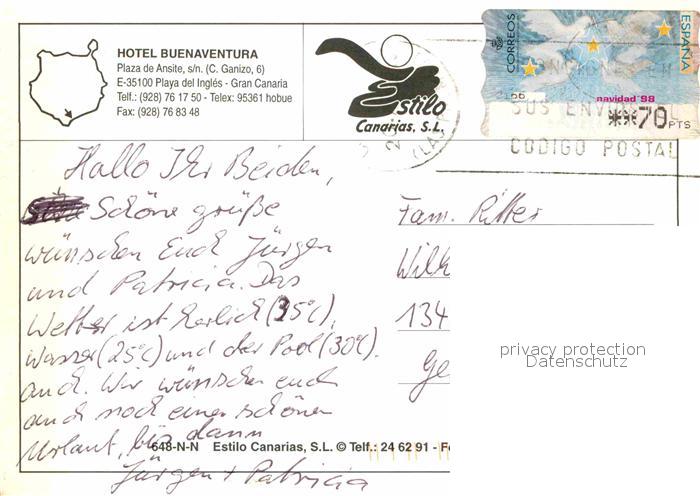 HOTEL BUENAVENTURA
Plaza de Ansite, s/n. (C. Ganizo, 6)
E-35100 Playa del Inglés - Gran Canaria
Telf.: (928) 76 17 50 - Telex: 95361 hobue
Fax: (928) 76 83 48
Estilo
Canarias, S.L.
CORREOS
ESPAÑA
navidad '98
**70 PTS
SUS ENVIOS
CODIGO POSTAL
Hallo Ihr Beiden,
Schöne grüße
wünschen Euch Jürgen
und Patricia. Das
Wetter ist herlich (35°C),
Wasser (25°C) und der Pool (30°C).
auch. Wir wünschen euch
auch noch einen schönen
Urlaub, bis dann
Jürgen + Patricia
Fam. Ritter
Wilh
134
Ge
privacy protection
Datenschutz
648-N-N Estilo Canarias, S.L. © Telf.: 24 62 91 - F